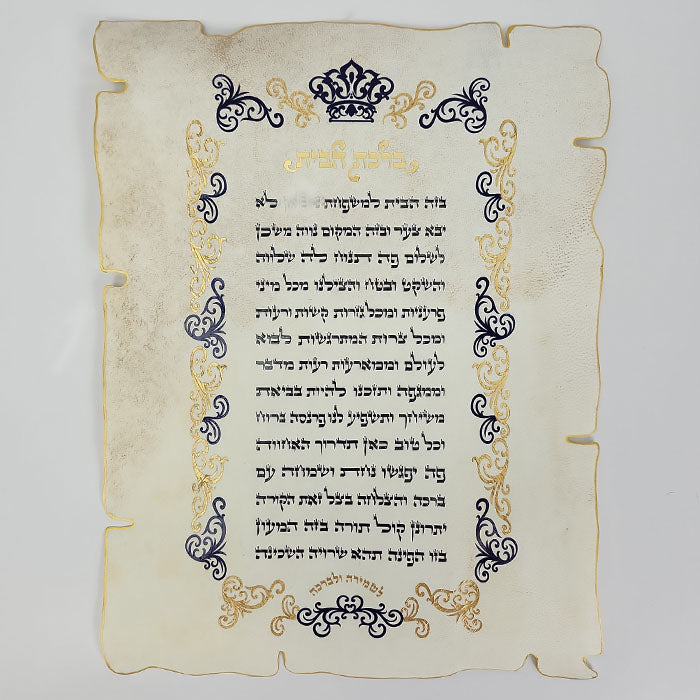 ברכת הבית
בזה הבית למשפחת לא
יבא צער ובזה המקום נווה משכן
לשלום פה תנוח לה שלווה
והשקט ובטח והצילנו מכל מיני
פרעניות ומכל גזרות קשות ורעות
ומכל צרות המתרגשות לבוא
לעולם וממארעות רעות מדבר
וממגפה ותזכנו להיות בביאת
משיחך ותשפיע לנו פרנסה ברוח
וכל טוב כאן תדרוך האחווה
פה יפגשו נחת ושמחה עם
ברכה והצלחה בצל זאת הקורה
יתרונן קול תורה בזה המעון
בזו הפינה תהא שרויה השכינה
לשמירה ולברכה